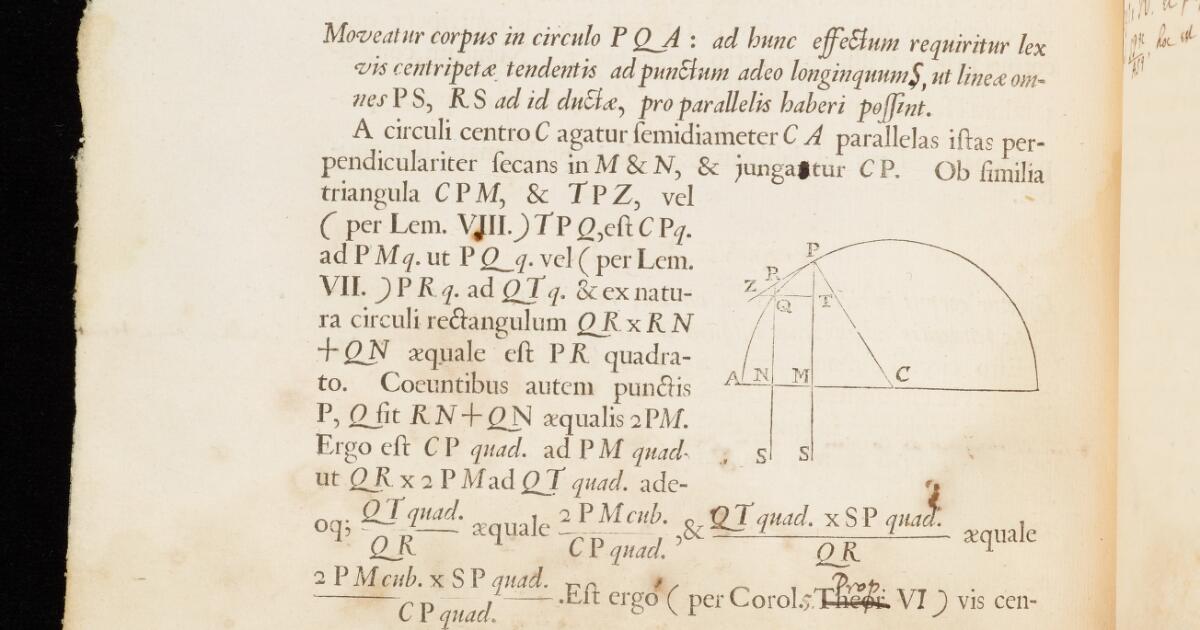 Moveatur corpus in circulo PQA: ad hunc effectum requiritur lex
vis centripetæ tendentis ad punctum adeo longinquum S, ut lineæ om-
nes PS, RS ad id ductæ, pro parallelis haberi poſſint.
A circuli centro C agatur ſemidiameter CA parallelas iſtas per-
pendiculariter ſecans in M & N, & jungatur CP. Ob ſimilia
triangula CPM, & TPZ, vel
(per Lem. VIII.) TPQ, eſt CPq.
ad PMq. ut PQq. vel (per Lem.
VII.) PRq. ad QTq. & ex natu-
ra circuli rectangulum QR x RN
+QN æquale eſt PR quadra-
to. Coeuntibus autem punctis
P, Q fit RN+QN æqualis 2PM.
Ergo eſt CP quad. ad PM quad.
ut QR x 2PM ad QT quad. ade-
oq; QT quad. / QR æquale 2PM cub. / CP quad., & QT quad. x SP quad. / QR æquale
2PM cub. x SP quad. / CP quad. . Eſt ergo (per Corol. 5. Prop. VI) vis cen-
P
R
Z
Q
T
A N M C
S S